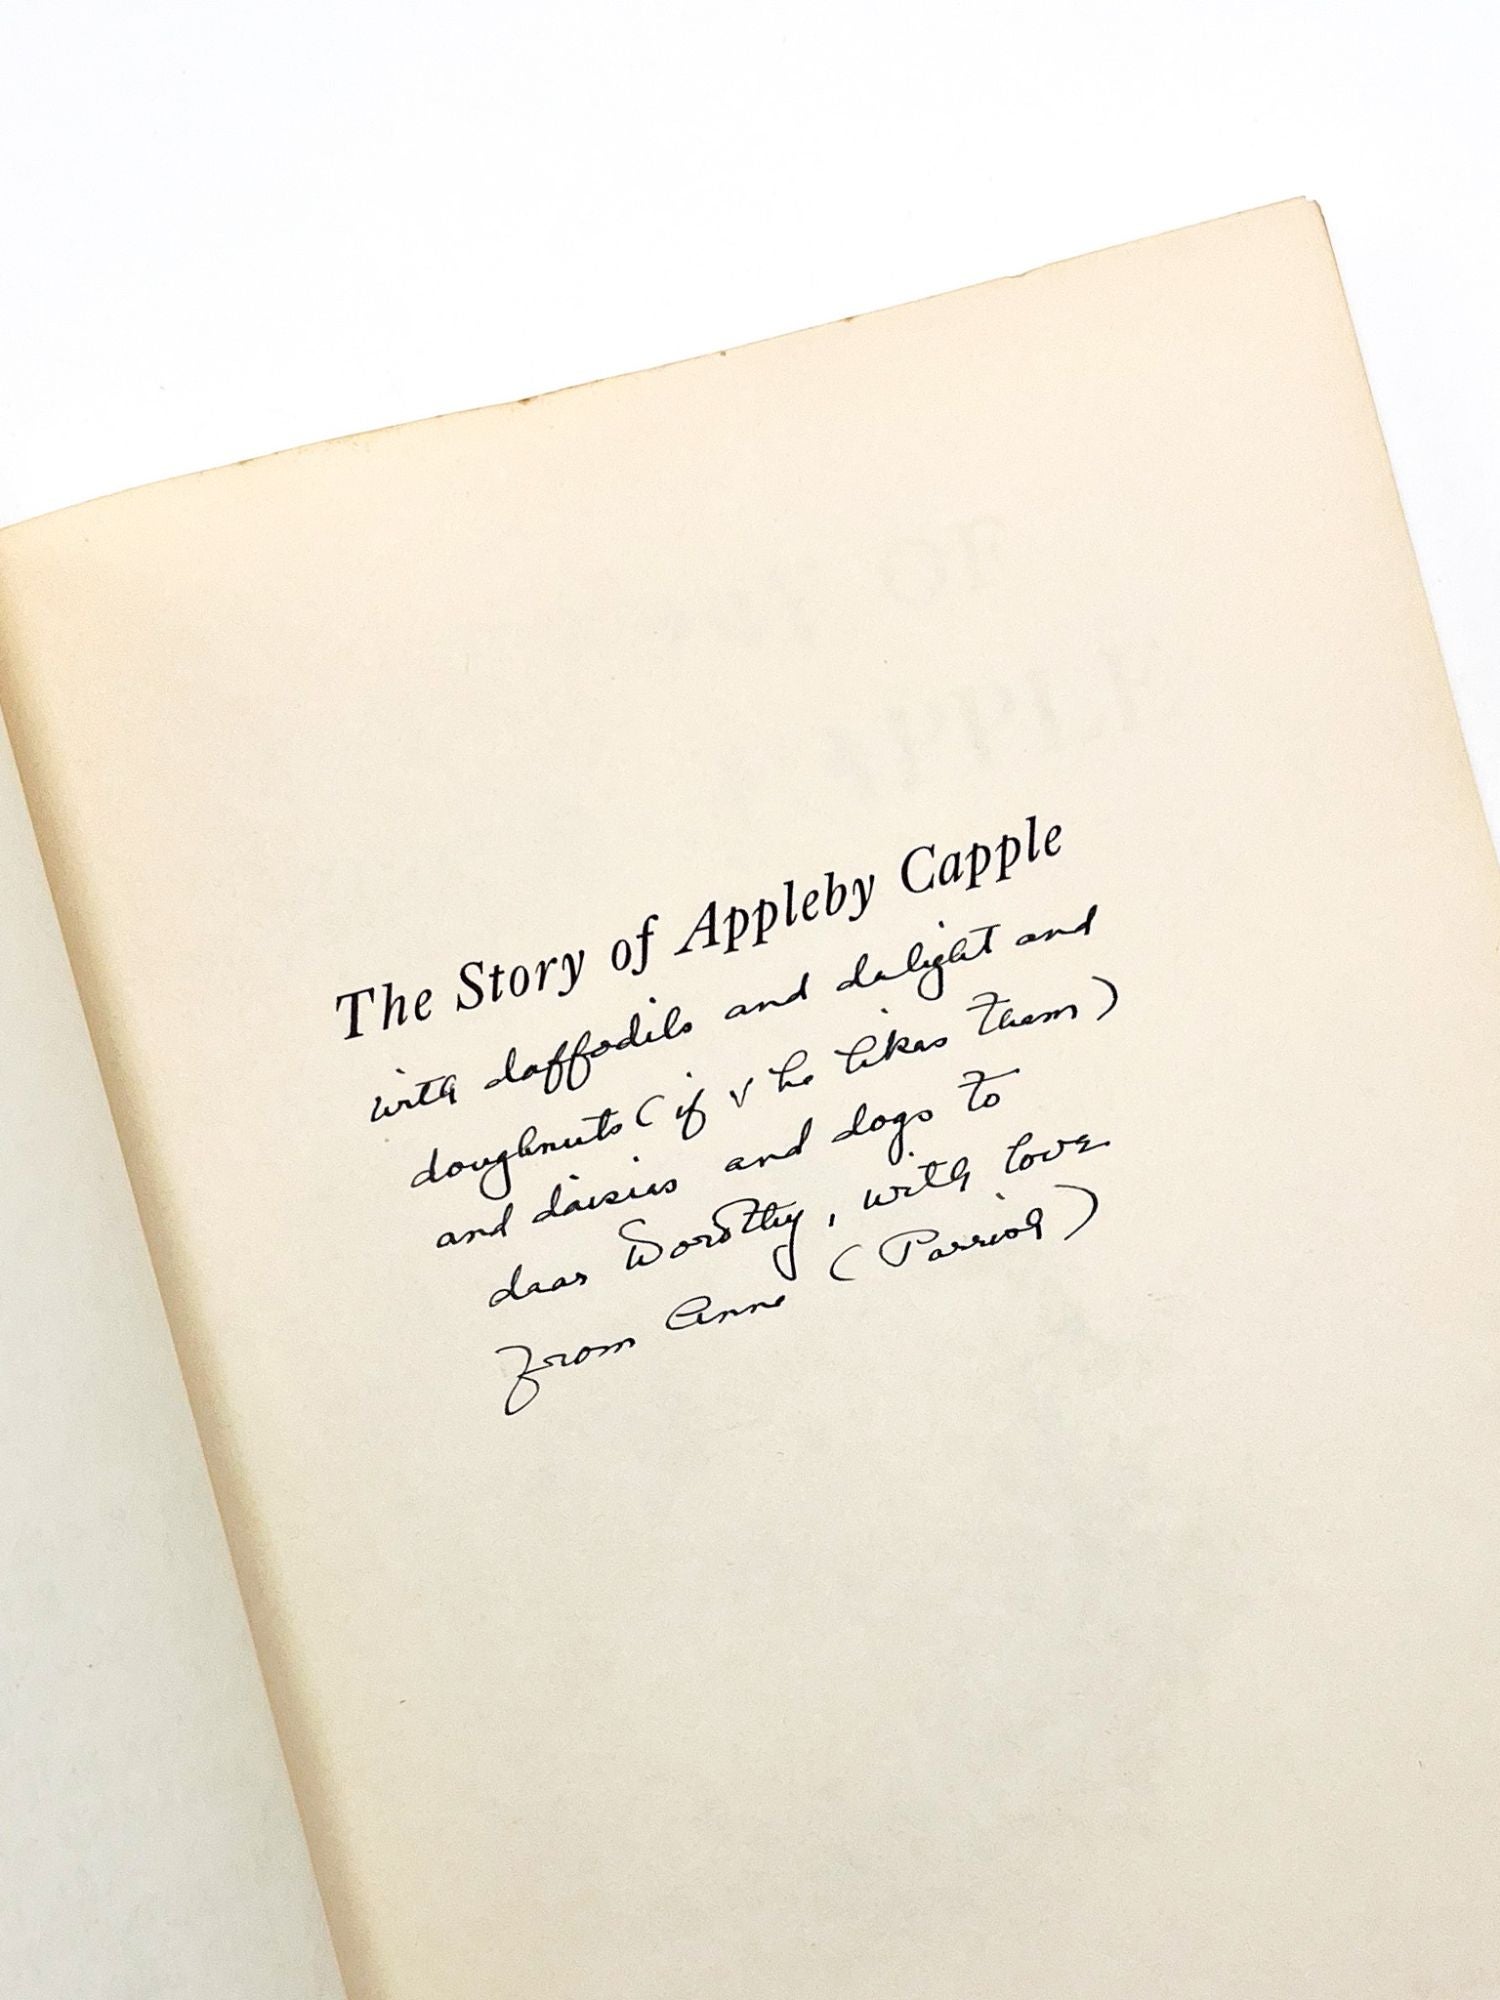 The Story of Appleby Capple
with daffodils and delight and
doughnuts (if she likes them)
and daisies and dogs to
dear Dorothy, with love
from Anne (Parrish)